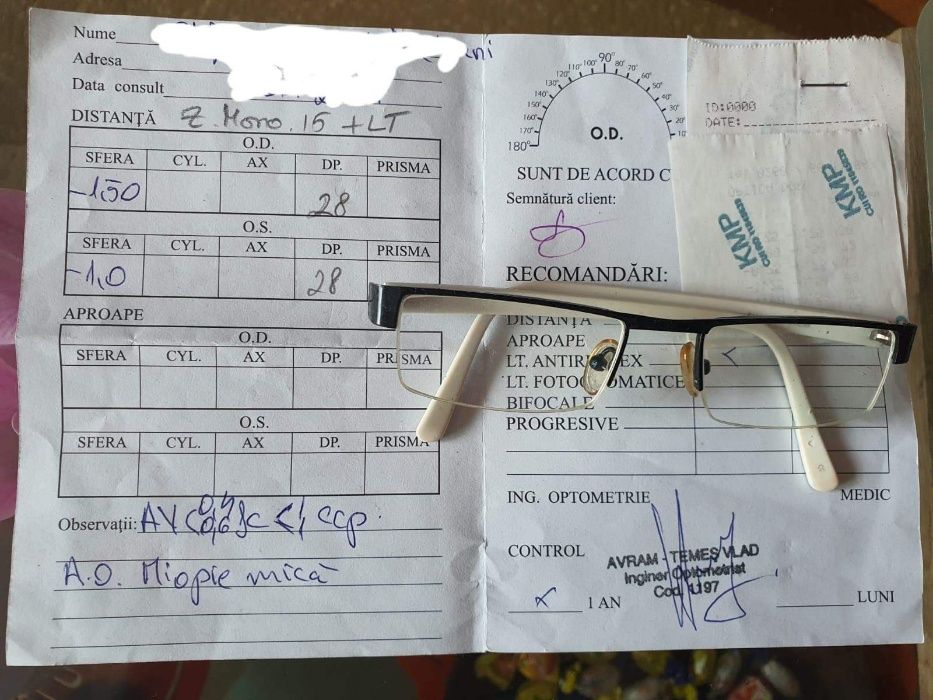 Nume
Adresa
Data consult
DISTANȚĂ Z. Mono. 15 + LT
O.D.
SFERA CYL. AX DP. PRISMA
-1,50 28
O.S.
SFERA CYL. AX DP. PRISMA
-1,0 28
APROAPE
O.D.
SFERA CYL. AX DP. PRISMA
O.S.
SFERA CYL. AX DP. PRISMA
Observații: AV 0,4 0,6
A.O. Miopie mică
180° 170° 160° 150° 140° 130° 120° 110° 100° 90° 80° 70° 60° 50° 40° 30° 20° 10
O.D.
SUNT DE ACORD C
Semnătură client:
RECOMANDĂRI:
DISTANȚA
APROAPE
LT. ANTIR EX
LT. FOTOC OMATICE
BIFOCALE
PROGRESIVE
ING. OPTOMETRIE MEDIC
CONTROL
AVRAM - TEMEȘ VLAD
Inginer Optometrist
Cod. 1197
x 1 AN LUNI
ID:0000
DATE:
KMP
KMP